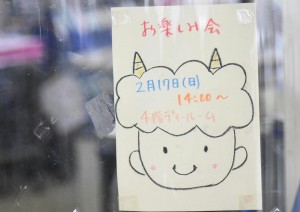 お楽しみ会
2月17日(日)
14:00～
4階デイルーム